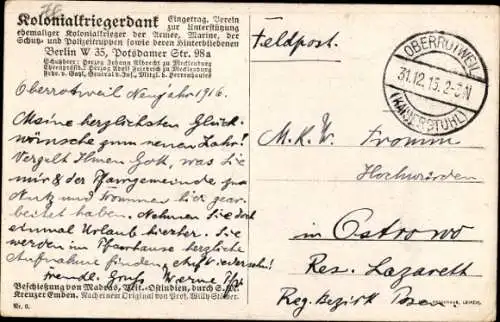 Kolonialkriegerdank Eingetrag. Verein
zur Unterstützung
ehemaliger Kolonialkrieger der Armee, Marine, der
Schutz- und Polizeitruppen sowie deren Hinterbliebenen
Berlin W 35, Potsdamer Str. 98a
Schutzherr: Herzog Johann Albrecht zu Mecklenburg
Ehrenpräsid.: Herzog Adolf Friedrich zu Mecklenburg
Frhr. v. Gayl, General d. Inf., Mitgl. d. Herrenhauses
Oberrotweil Neujahr 1916.
Meine herzlichsten Glück-
wünsche zum neuen Jahr!
Vergelt Ihnen Gott, was Sie
mir & der Pfarrgemeinde zu
Nutz und Frommen hier gear-
beitet haben. Nehmen Sie doch
einmal Urlaub hierher. Sie
werden im Pfarrhause herzliche
Aufnahme finden. Auf Wiedersehn!
freundl. Gruß Werne
Beschießung von Madras, Brit.-Ostindien, durch S. M.
Kreuzer Emden. Nach einem Original von Prof. Willy Stöwer.
Nr. 6.
Feldpost.
OBERROTWEIL
31.12.15. 2-3N
(KAISERSTUHL)
M. K. W. Fromm
Hochwürden
in Ostrowo
Res. Lazareth
Reg. Bezirk Posen
LEIPZIG.